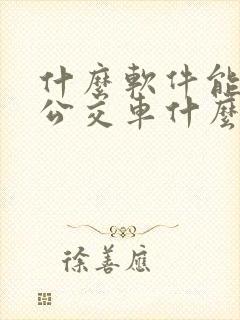 什麼軟件能
公交車什麼
徐善應